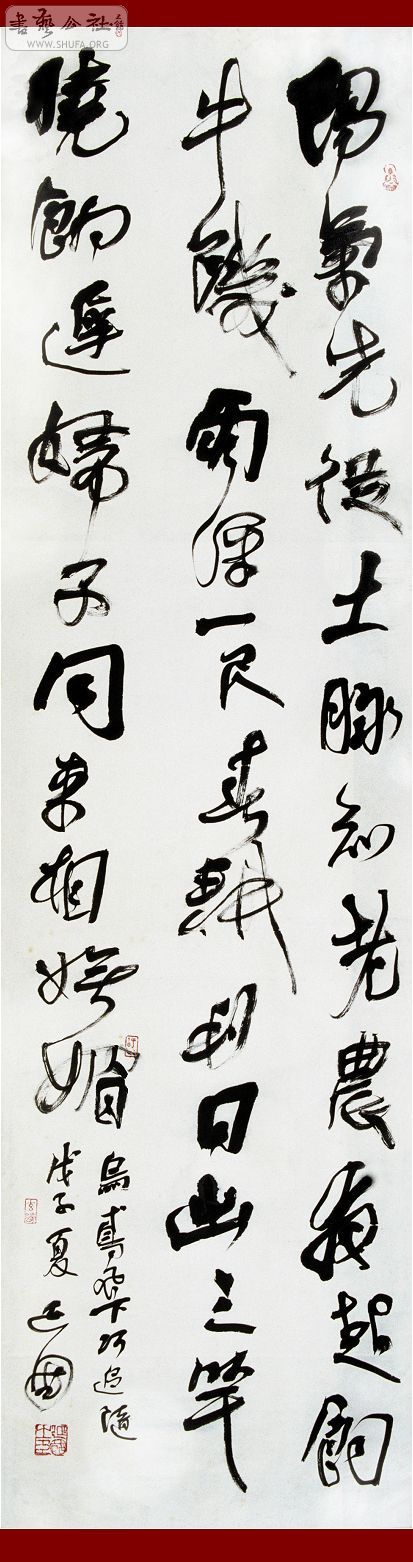 書藝公社
WWW.SHUFA.ORG
陽氣先從土脈知老農夜起飼
牛饑雨深一尺春耕利日出三竿
曉餉遲婦子同來相嫵媚
烏鳶飛下巧追隨
戊子夏